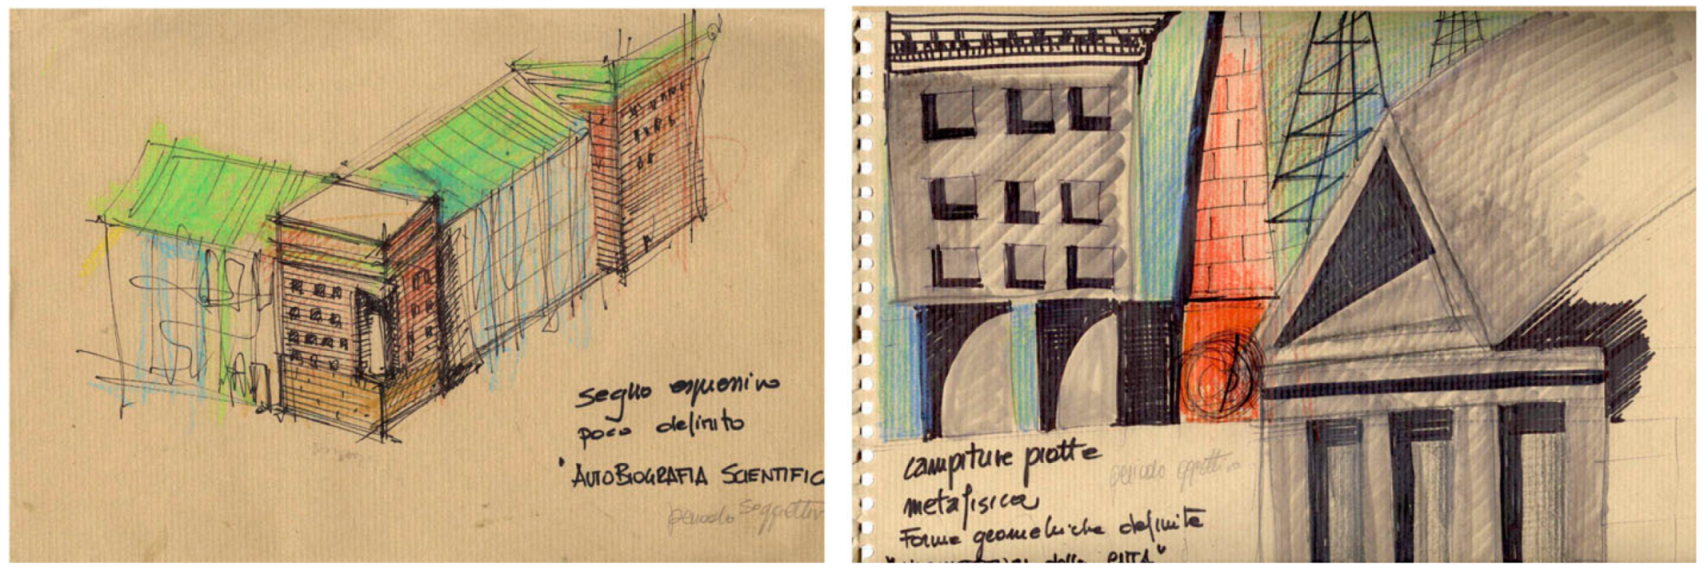 segno espressivo
poco definito
"AUTOBIOGRAFIA SCIENTIFIC
periodo soggettiv
campiture piatte
periodo oggettivo
metafisica
Forme geometriche definite
della città"